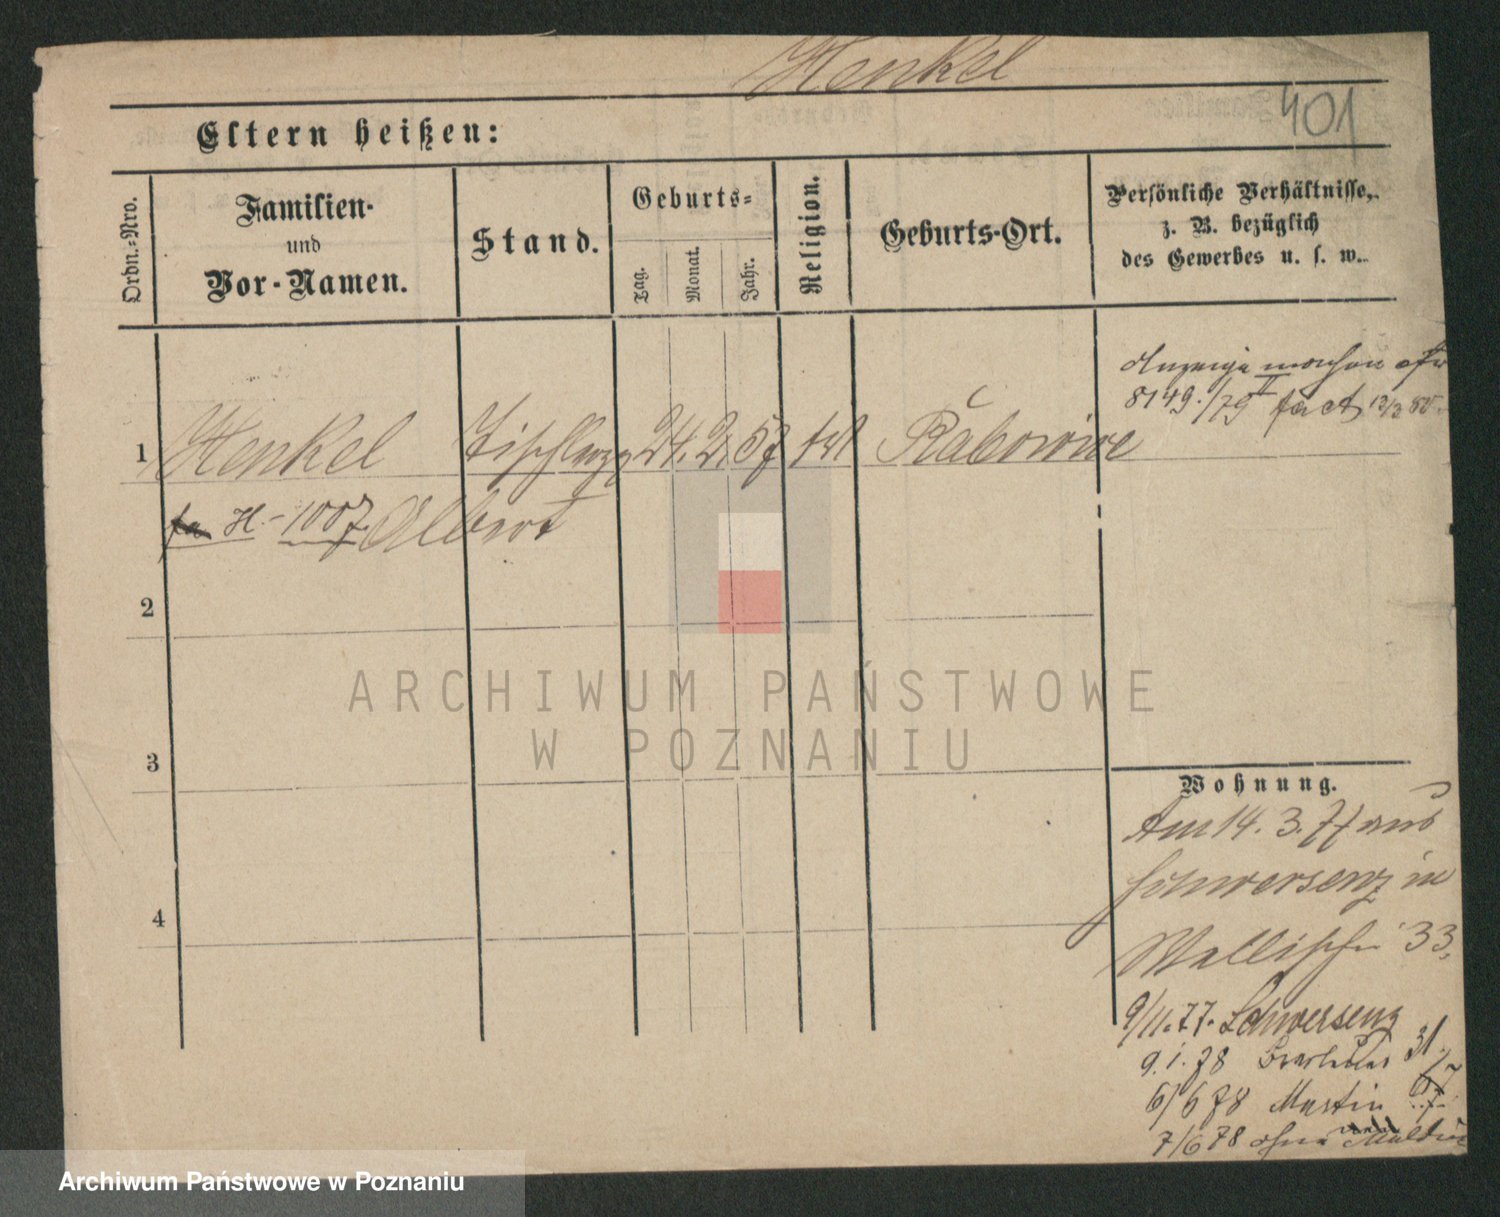 Henkel
401
Eltern heißen:
Ordn.-Nro.
Familien-
und
Vor-Namen.
Stand.
Geburts-
Tag.
Monat.
Jahr.
Religion.
Geburts-Ort.
Persönliche Verhältnisse,
z. B. bezüglich
des Gewerbes u. s. w.
8149./79 II
1 Henkel 24. 2. 57 Rabowice
H. - 1007. Albert
2
3
4
Wohnung.
Am 14. 3. 77 aus
Schwersenz in
Wallischei 33,
9/11. 77. Schwersenz
9. 1. 78 Breslauer 31.
6/6 78 Martin 67
7/6 78 ohne
ARCHIWUM PAŃSTWOWE
W POZNANIU
Archiwum Państwowe w Poznaniu